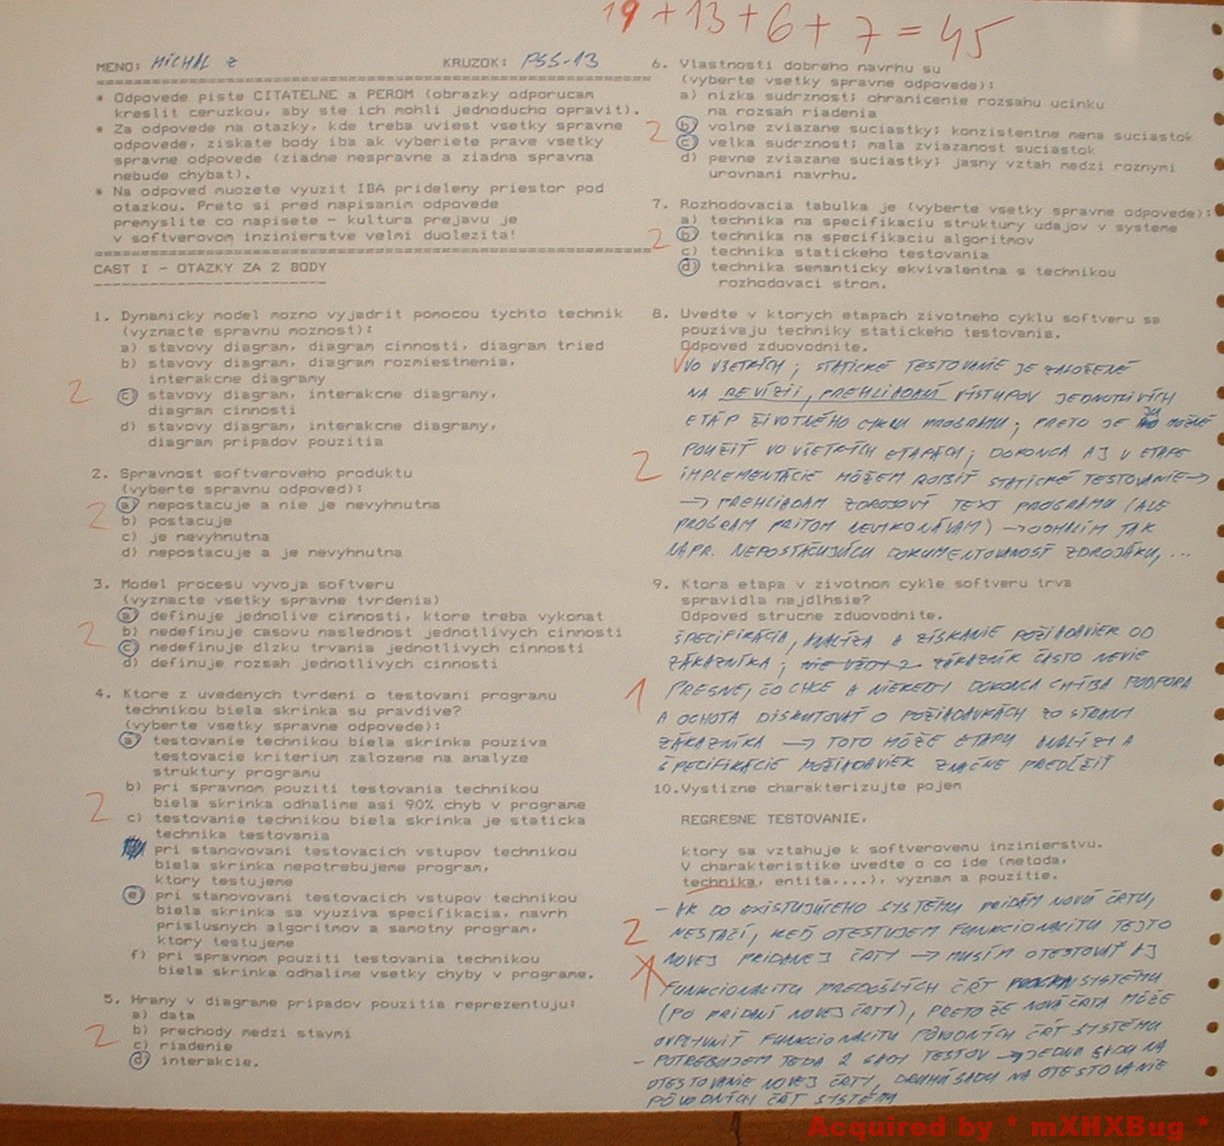 19 + 13 + 6 + 7 = 45
MENO: MICHAL Z KRUZOK: PSS-13
* Odpovede piste CITATELNE a PEROM (obrazky odporucam
kreslit ceruzkou, aby ste ich mohli jednoducho opravit).
* Za odpovede na otazky, kde treba uviest vsetky spravne
odpovede, ziskate body iba ak vyberiete prave vsetky
spravne odpovede (ziadne nespravne a ziadna spravna
nebude chybat).
* Na odpoved muozete vyuzit IBA prideleny priestor pod
otazkou. Preto si pred napisanim odpovede
premyslite co napisete - kultura prejavu je
v softverovom inzinierstve velmi duolezita!
CAST I - OTAZKY ZA 2 BODY
1. Dynamicky model mozno vyjadrit pomocou tychto technik
(vyznacte spravnu moznost):
a) stavovy diagram, diagram cinnosti, diagram tried
b) stavovy diagram, diagram rozmiestnenia,
interakcne diagramy
2 c) stavovy diagram, interakcne diagramy,
diagram cinnosti
d) stavovy diagram, interakcne diagramy,
diagram pripadov pouzitia
2. Spravnost softveroveho produktu
(vyberte spravnu odpoved):
2 a) nepostacuje a nie je nevyhnutna
b) postacuje
c) je nevyhnutna
d) nepostacuje a je nevyhnutna
3. Model procesu vyvoja softveru
(vyznacte vsetky spravne tvrdenia)
a) definuje jednolive cinnosti, ktore treba vykonat
2 b) nedefinuje casovu naslednost jednotlivych cinnosti
c) nedefinuje dlzku trvania jednotlivych cinnosti
d) definuje rozsah jednotlivych cinnosti
4. Ktore z uvedenych tvrdeni o testovani programu
technikou biela skrinka su pravdive?
(vyberte vsetky spravne odpovede):
a) testovanie technikou biela skrinka pouziva
testovacie kriterium zalozene na analyze
struktury programu
b) pri spravnom pouziti testovania technikou
2 biela skrinka odhalime asi 90% chyb v programe
c) testovanie technikou biela skrinka je staticka
technika testovania
pri stanovovani testovacich vstupov technikou
biela skrinka nepotrebujeme program,
ktory testujeme
e) pri stanovovani testovacich vstupov technikou
biela skrinka sa vyuziva specifikacia, navrh
prislusnych algoritmov a samotny program,
ktory testujeme
f) pri spravnom pouziti testovania technikou
biela skrinka odhalime vsetky chyby v programe.
5. Hrany v diagrame pripadov pouzitia reprezentuju:
a) data
2 b) prechody medzi stavmi
c) riadenie
d) interakcie.
6. Vlastnosti dobreho navrhu su
(vyberte vsetky spravne odpovede):
a) nizka sudrznost; ohranicenie rozsahu ucinku
na rozsah riadenia
2 b) volne zviazane suciastky; konzistentne mena suciastok
c) velka sudrznost; mala zviazanost suciastok
d) pevne zviazane suciastky; jasny vztah medzi roznymi
urovnami navrhu.
7. Rozhodovacia tabulka je (vyberte vsetky spravne odpovede):
a) technika na specifikaciu struktury udajov v systeme
2 b) technika na specifikaciu algoritmov
c) technika statickeho testovania
d) technika semanticky ekvivalentna s technikou
rozhodovaci strom.
8. Uvedte v ktorych etapach zivotneho cyklu softveru sa
pouzivaju techniky statickeho testovania.
Odpoved zduovodnite.
VO VŠETKÝCH; STATICKÉ TESTOVANIE JE ZALOŽENÉ
NA REVÍZII, PREHLIADANÍ VÝSTUPOV JEDNOTLIVÝCH
ETÁP ŽIVOTNÉHO CYKLU PROGRAMU; PRETO JE JU MOŽNÉ
POUŽIŤ VO VŠETKÝCH ETAPÁCH; DOKONCA AJ V ETAPE
2 IMPLEMENTÁCIE MÔŽEM ROBIŤ STATICKÉ TESTOVANIE →
→ PREHLIADAM ZDROJOVÝ TEXT PROGRAMU (ALE
PROGRAM PRITOM NEVYKONÁVAM) → ODHALÍM TAK
NAPR. NEPOSTAČUJÚCU DOKUMENTOVANOSŤ ZDROJÁKU, ...
9. Ktora etapa v zivotnom cykle softveru trva
spravidla najdlhsie?
Odpoved strucne zduovodnite.
ŠPECIFIKÁCIA, ANALÝZA A ZÍSKANIE POŽIADAVIEK OD
ZÁKAZNÍKA; ZÁKAZNÍK ČASTO NEVIE
1 PRESNE, ČO CHCE A NIEKEDY DOKONCA CHÝBA PODPORA
A OCHOTA DISKUTOVAŤ O POŽIADAVKÁCH ZO STRANY
ZÁKAZNÍKA → TOTO MÔŽE ETAPU ANALÝZY A
ŠPECIFIKÁCIE POŽIADAVIEK ZNAČNE PREDĹŽIŤ
10.Vystizne charakterizujte pojem
REGRESNE TESTOVANIE,
ktory sa vztahuje k softverovemu inzinierstvu.
V charakteristike uvedte o co ide (metoda,
technika, entita,...), vyznam a pouzitie.
- AK DO EXISTUJÚCEHO SYSTÉMU PRIDÁM NOVÚ ČRTU,
2 NESTAČÍ, KEĎ OTESTUJEM FUNKCIONALITU TEJTO
NOVEJ PRIDANEJ ČRTY → MUSÍM OTESTOVAŤ AJ
FUNKCIONALITU PREDOŠLÝCH ČŔT SYSTÉMU
(PO PRIDANÍ NOVEJ ČRTY), PRETOŽE NOVÁ ČRTA MÔŽE
OVPLYVNIŤ FUNKCIONALITU PÔVODNÝCH ČŔT SYSTÉMU
- POTREBUJEM TEDA 2 SADY TESTOV → JEDNU SADU NA
OTESTOVANIE NOVEJ ČRTY, DRUHÚ SADU NA OTESTOVANIE
PÔVODNÝCH ČŔT SYSTÉMU
Acquired by * mXHXBug *